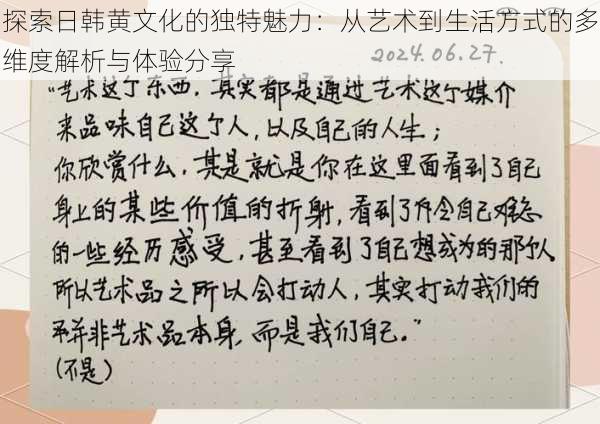 探索日韩黄文化的独特魅力：从艺术到生活方式的多
维度解析与体验分享
2024.06.27.
“艺术这个东西，其实都是通过艺术这个媒介
来品味自己这个人，以及自己的人生；
你欣赏什么，其是就是你在这里面看到了自己
身上的某些价值的折射，看到了什令自己难忘
的一些经历感受，甚至看到了自己想成为的那个人
所以艺术品之所以会打动人，其实打动我们的
并非艺术品本身，而是我们自己。”
(不是)